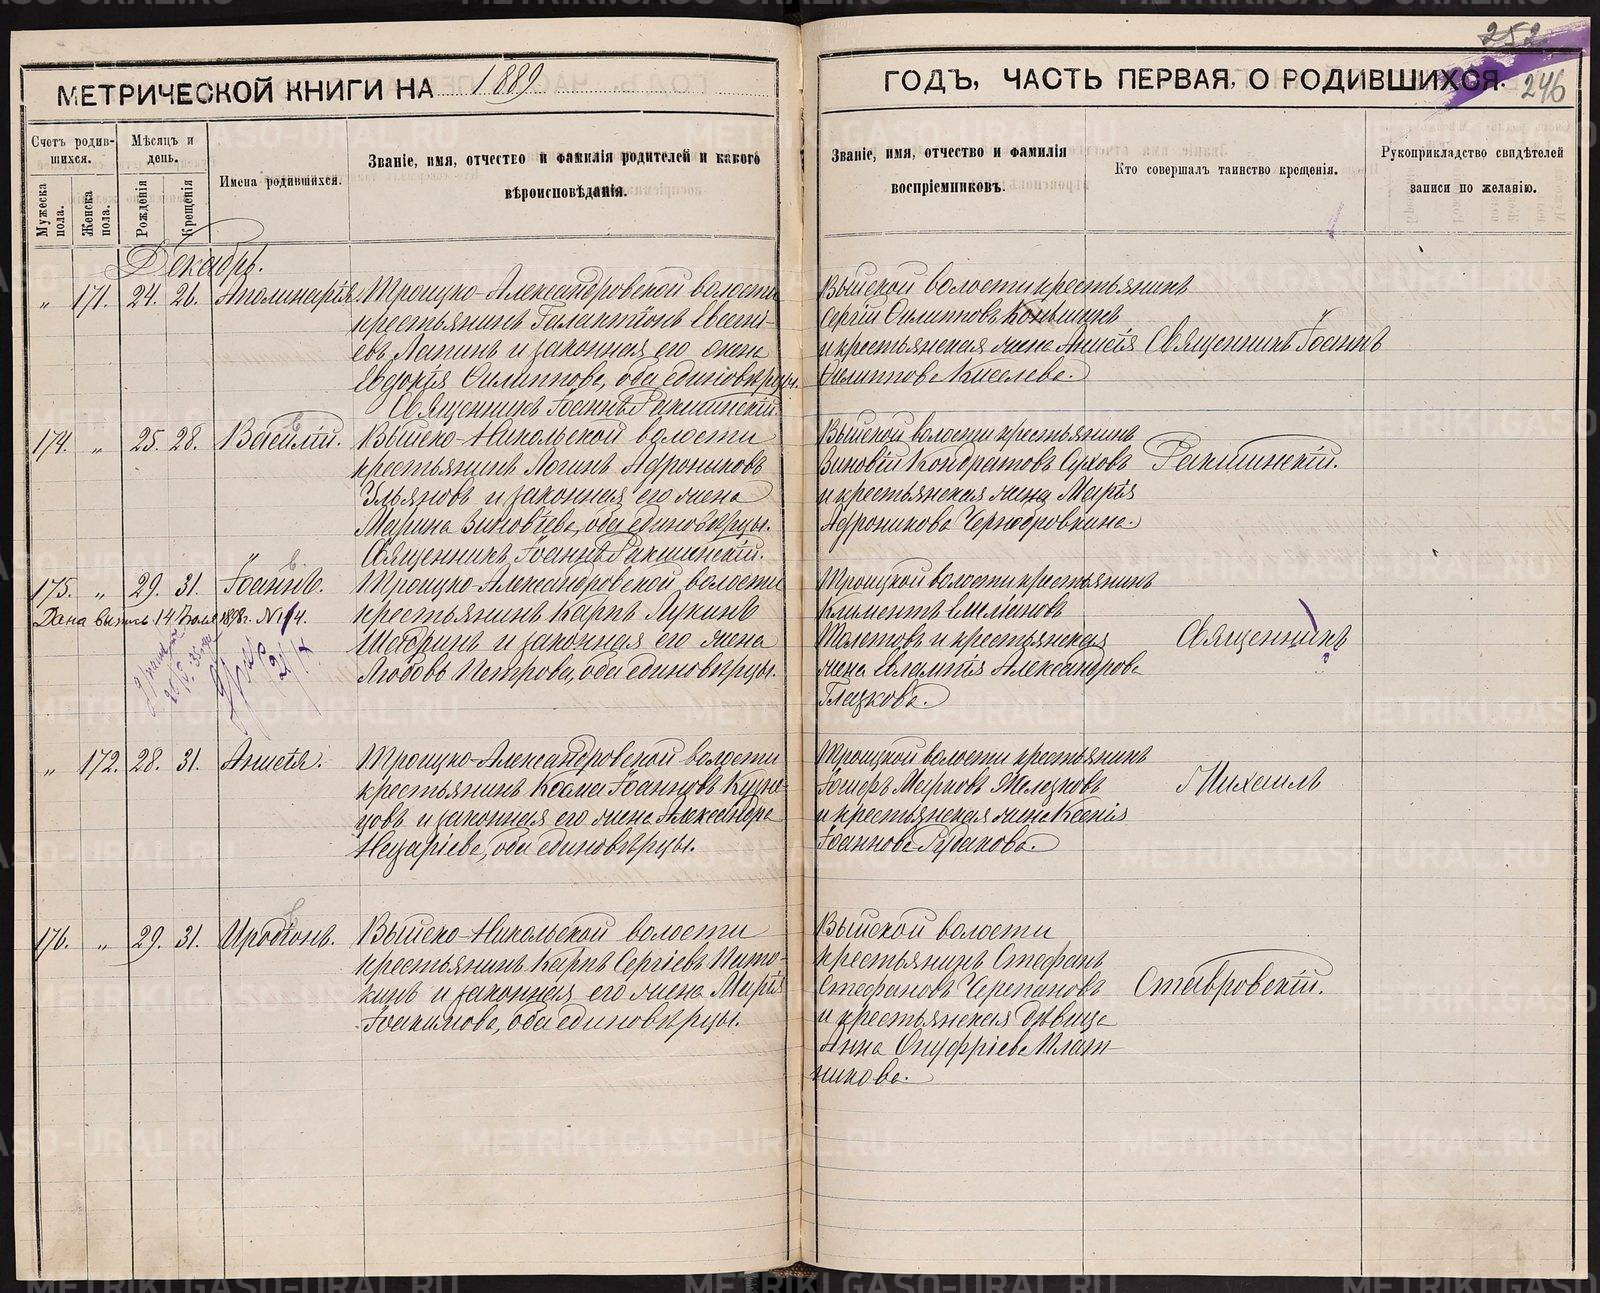 252
246
МЕТРИЧЕСКОЙ КНИГИ НА 1889
ГОДЪ, ЧАСТЬ ПЕРВАЯ, О РОДИВШИХСЯ.
Счетъ родив-
шихся.
Мужеска пола.
Женска пола.
Мѣсяцъ и
день.
Рожденія
Крещенія
Имена родившихся.
Званіе, имя, отчество и фамилія родителей и какого
вѣроисповѣданія.
Званіе, имя, отчество и фамилія
воспріемниковъ.
Кто совершалъ таинство крещенія.
Рукоприкладство свидѣтелей
записи по желанію.
Декабрь.
„ 171. 24. 26. Аполинарія. Троицко-Александровской волости
крестьянинъ Галактіонъ Евсті-
евъ Лапинъ и законная его жена
Евдокія Филиппова, оба единовѣрцы.
Священникъ Іоаннъ Ракшинскій.
Выйской волости крестьянинъ
Сергій Филипповъ Коньшинъ
и крестьянская жена Анисія
Филиппова Киселева.
Священникъ Іоаннъ
174. „ 25. 28. Василій. Выйско-Никольской волости
крестьянинъ Логинъ Адрониковъ
Ульяновъ и законная его жена
Марина Зиновіева, оба единовѣрцы.
Священникъ Іоаннъ Ракшинскій.
Выйской волости крестьянинъ
Зиновій Кондратовъ Суховъ
и крестьянская жена Марія
Адроникова Чернобровкина.
Ракшинскій.
175. „ 29. 31. Іоаннъ. Троицко-Александровской волости
крестьянинъ Карпъ Лукинъ
Шабринъ и законная его жена
Любовь Петрова, оба единовѣрцы.
Дана выпись 14 1898 г. №
Троицкой волости крестьянинъ
Климентъ Емеліановъ
и крестьянская
жена Евлампія Александрова
Глазкова.
Священникъ
„ 172. 28. 31. Анисія. Троицко-Александровской волости
крестьянинъ Козма Іоанновъ Кузне-
цовъ и законная его жена Александра
Назаріева, оба единовѣрцы.
Троицкой волости крестьянинъ
Марковъ Железковъ
и крестьянская жена Ксенія
Іоаннова Рудакова.
Михаилъ
176. „ 29. 31. Иродіонъ. Выйско-Никольской волости
крестьянинъ Карпъ Сергіевъ Пято-
кинъ и законная его жена Марія
Іоакимова, оба единовѣрцы.
Выйской волости
крестьянинъ Стефанъ
Стефановъ Черепановъ
и крестьянская дѣвица
Анна Онуфріева Плат-
никова.
Ставровскій.
METRIKI.GASO-URAL.RU